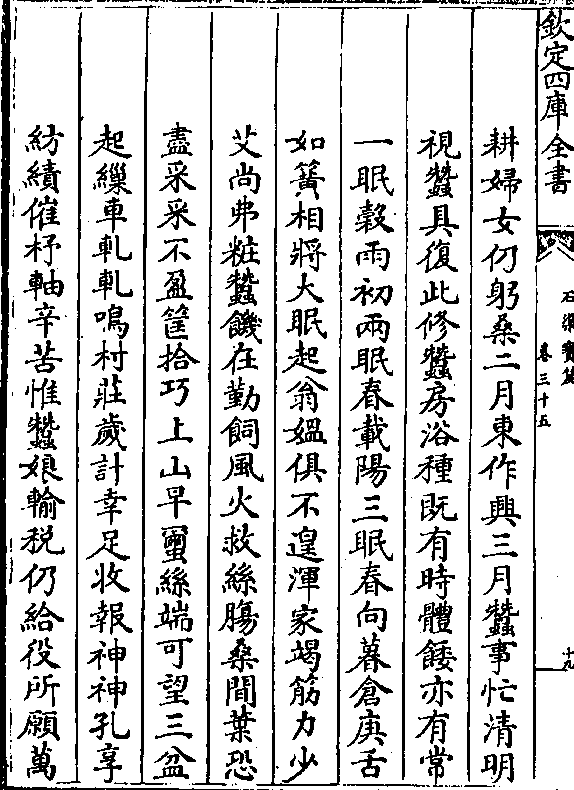 欽定四庫全書
石渠寶笈
卷三十五
十九
耕婦女仍躬桑二月東作興三月蠶事忙清明
視蠶具復此修蠶房浴種既有時體餧亦有常
一眠穀雨初兩眠春載陽三眠春向暮倉庚舌
如簧相將大眠起翁媼俱不遑渾家竭筋力少
艾尚弗粧蠶饑在勤飼風火救絲腸桑間葉恐
盡采采不盈筐拾巧上山早蠒絲端可望三盆
起繅車軋軋鳴村莊歲計幸足收報神神孔享
紡績催杼軸辛苦惟蠶娘輸税仍給役所願萬